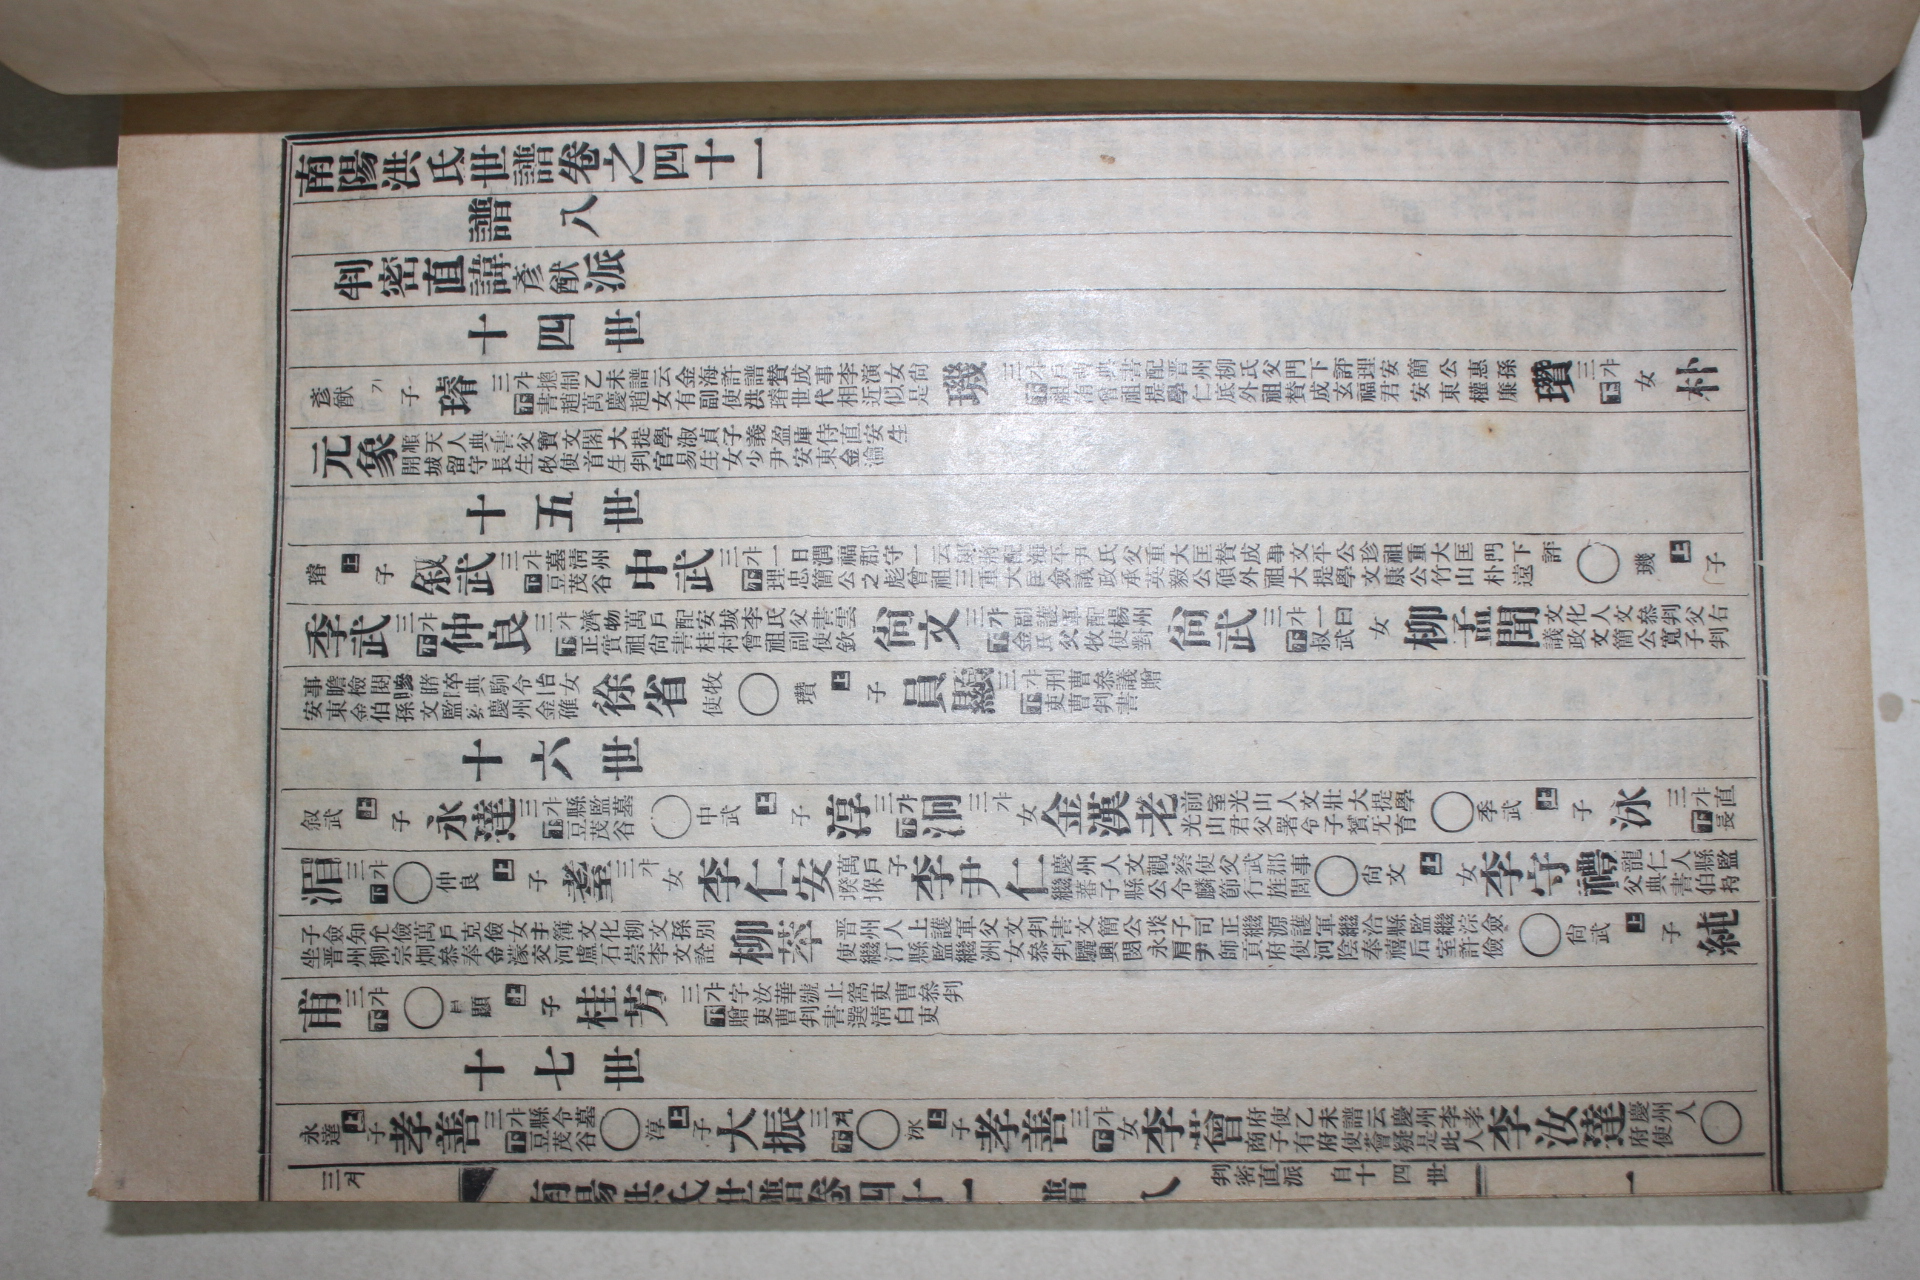 南陽洪氏世譜卷之四十一
譜八
判密直諱彥猷派
十四世
彥猷 기 子 璿 三갸 下 摠制乙未譜云金海許譜贊成事李演女尙書趙萬慶趙女有副使洪璿世代相近似是 璣 三갸 下 戶典典書配晋州柳氏父門下評理安簡公惠孫祖洧曾祖提學仁底外祖贊成玄福君安東權廉 瓚 三갸 下 女 朴
元象 順天人典書父寶文閣大提學淑貞子義盈庫侍直安生開城留守長生牧使首生判官易生女少尹安東金淪
十五世
璿 上 子 叙武 三갸 下 墓淸州豆茂谷 中武 三갸 下 一日潤福郡守一云郞將配海平尹氏父重大匡贊成事文平公珍祖重大匡門下評理忠簡公之彪曾祖三重大匡僉議政承英毅公碩外祖大提學文康公竹山朴遠 ○ 璣 上 子
季武 三갸 下 仲良 三갸 下 濟物萬戶配安城李氏父書雲正實祖尙書桂村曾祖副使欽 尙文 三갸 下 副護軍配楊州金氏父牧使對 尙武 三갸 下 一曰叔武 女 柳孟聞 文化人文叅判父右議政文簡公寬子判
事瞻檢閱 典駒令 女安東金伯孫文監 慶州金確 徐省 牧使 ○ 瓚 上 子 員顯 三갸 下 刑曹叅議贈吏曹判書
十六世
叙武 上 子 永達 三갸 下 縣監墓豆茂谷 ○ 中武 上 子 淳 三갸 下 泂 三갸 女 金漢老 前室光山人文壯大提學光山君父署令子贇无育 ○ 季武 上 子 泳 三갸 下 直長
湄 三갸 下 ○ 仲良 上 子 耄 三갸 女 李仁安 萬戶子揆堢 李尹仁 慶州人文觀察使父武郡事繼蕃子縣公令麟節行旌閭 ○ 尙文 上 女 李守禮 龍仁人縣監父典書伯持
子僉知允儉萬戶克儉女主簿文化柳文孫別坐晋州柳宗炯叅奉金濛交河盧石崇李文詮 柳萃 晋州人上護軍父文判書文簡公琰子司正繼源護軍繼洽縣監繼淙僉使繼汀縣監繼洲女叅判驪興閔永肩尹師貢府使河陰奉禧后室許儉 ○ 尙武 上 子 純
甫 三갸 下 ○ 員顯 上 子 桂芳 三갸 下 字汝華號止窩吏曹叅判贈吏曹判書選淸白吏
十七世
永達 上 子 孝善 三갸 下 縣令墓豆茂谷 ○ 淳 上 子 大振 三겨 下 ○ 泳 上 子 孝善 三갸 下 女 李薈 府使乙未譜云慶州李孝商子有府使薈疑是此人 李汝達 慶州人府使 ○
三겨 南陽洪氏世譜卷四十一 譜八 判密直派 自十四世 一